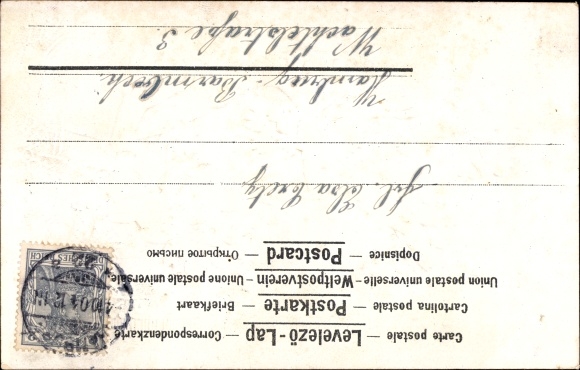 Carte postale — Levelező-Lap — Correspondenzkarte
Cartolina postale — Postkarte — Briefkaart
Union postale universelle — Weltpostverein — Unione postale universale
Dopisnice — Postcard — Открытое письмо
Frl. Elsa
Hamburg-Barmbeck.
Wachtelstraße 3.